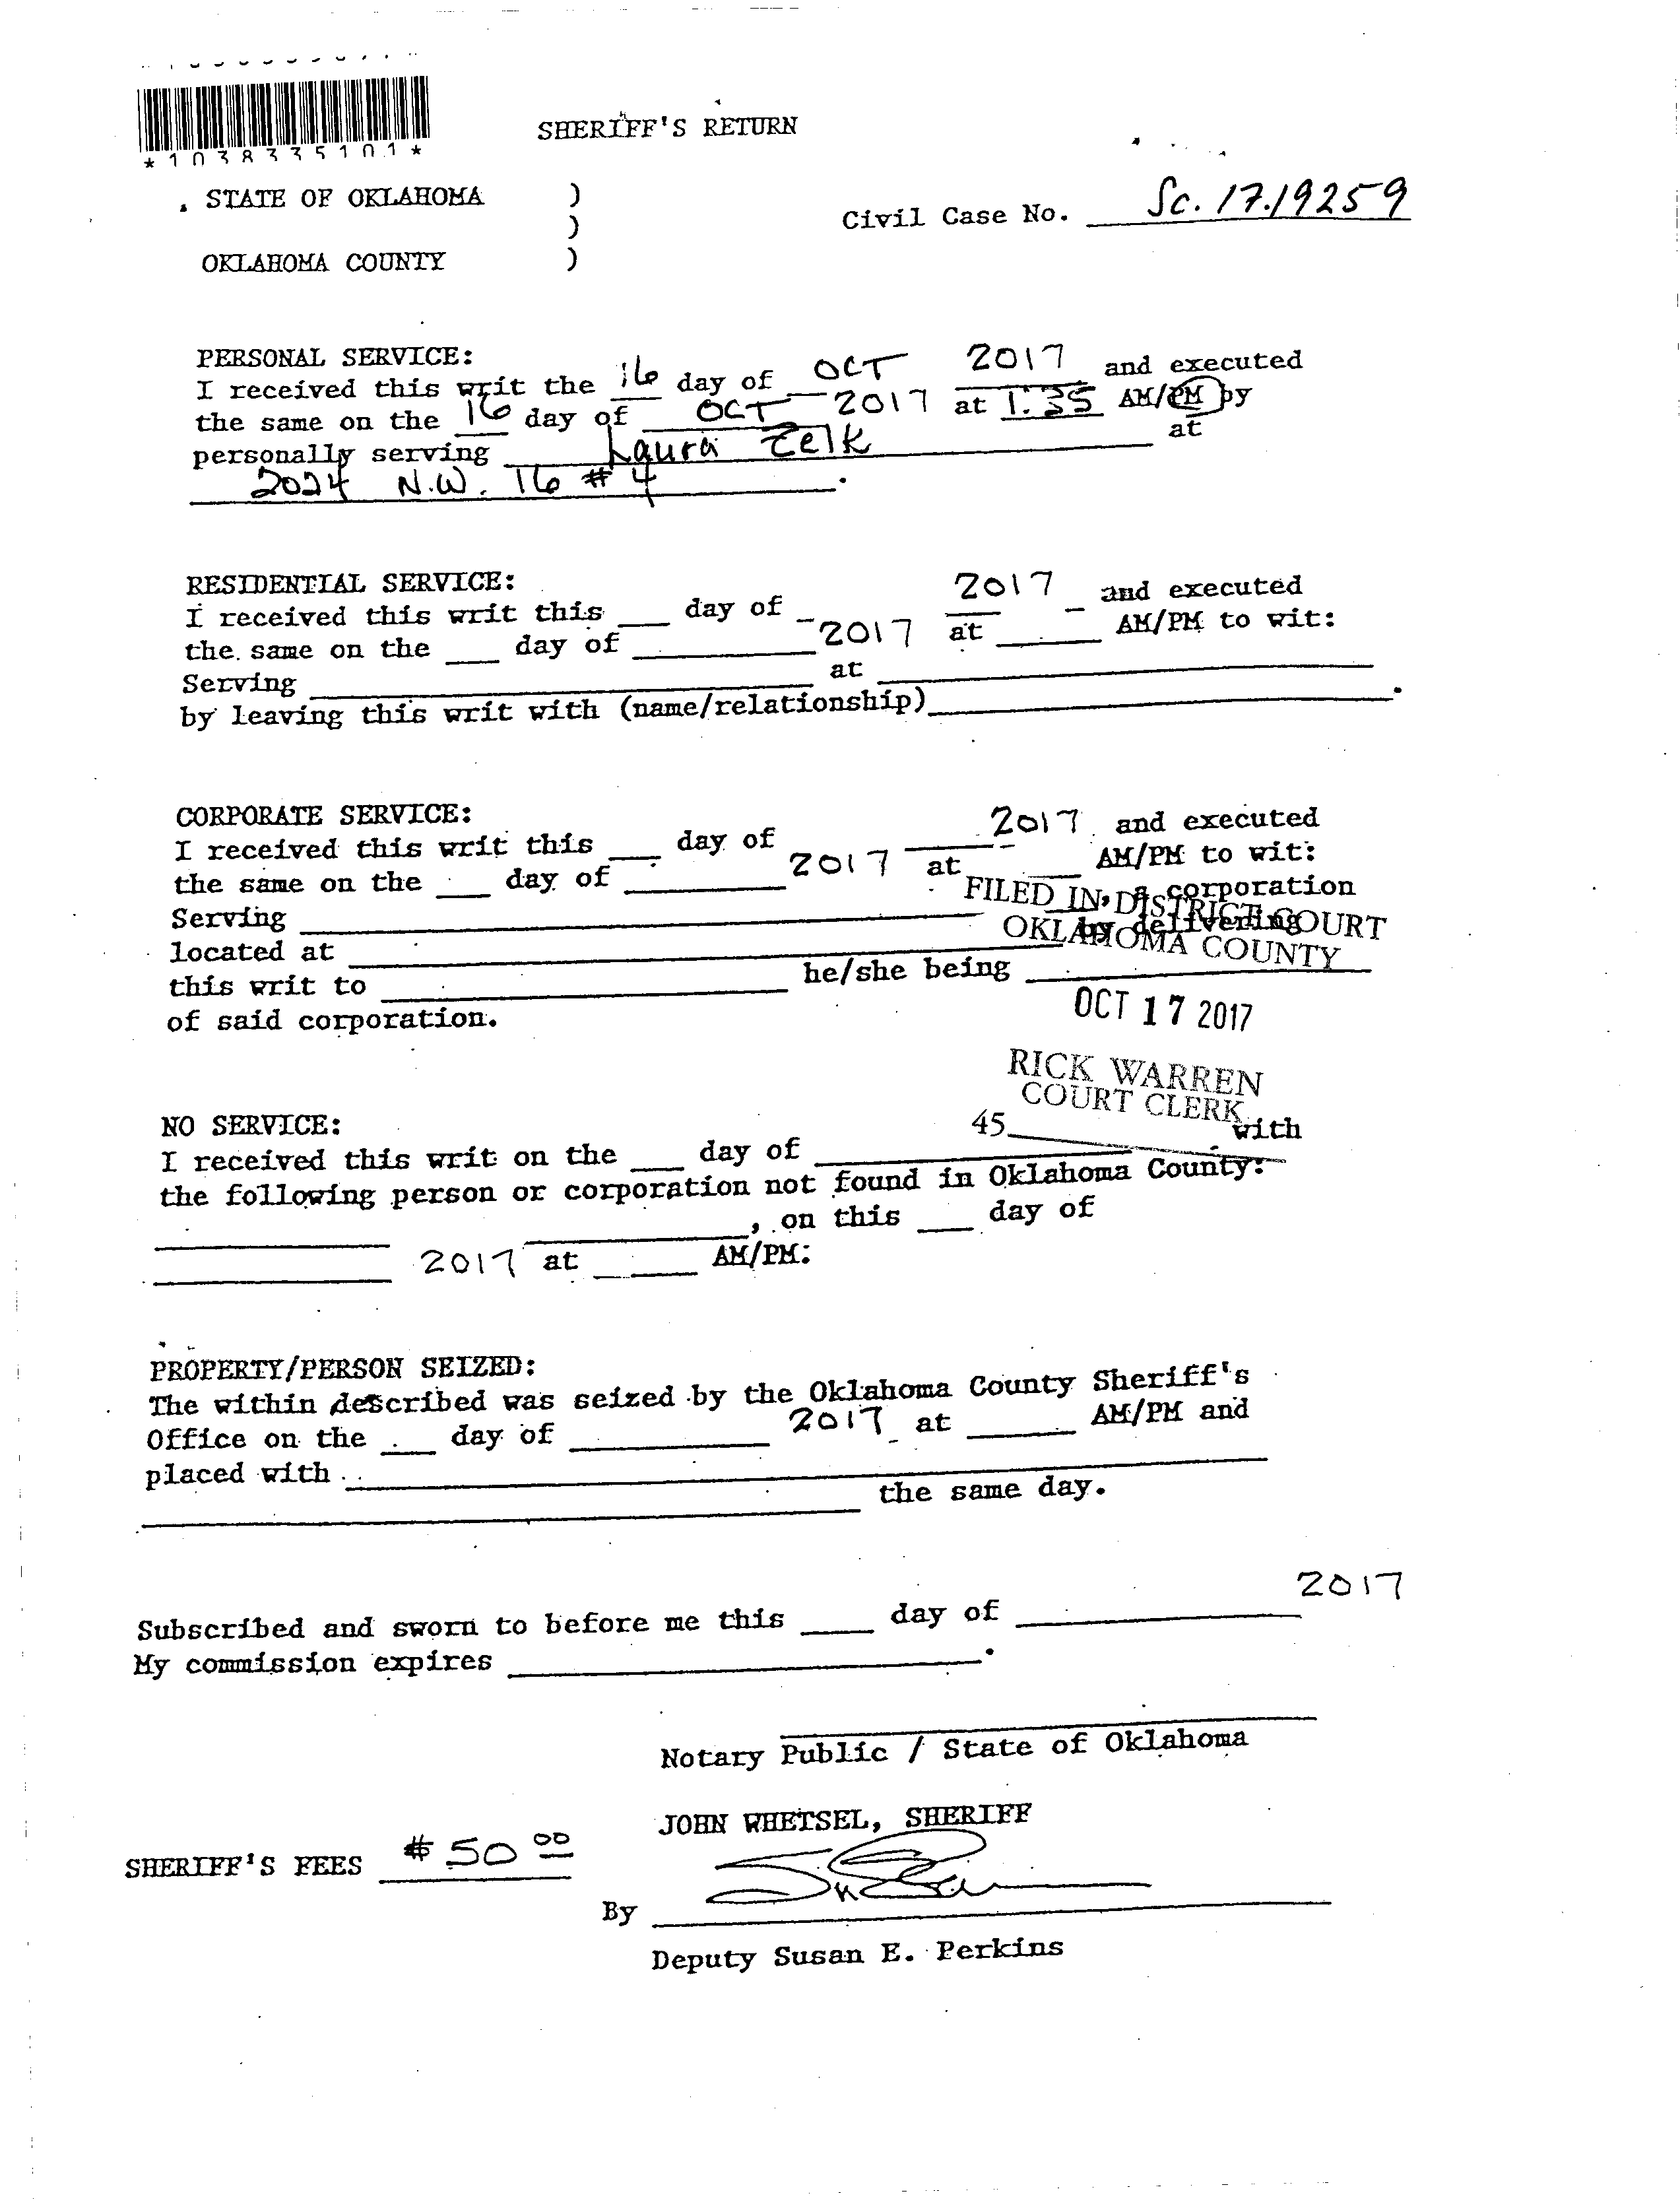 *1038335101*
SHERIFF'S RETURN
STATE OF OKLAHOMA )
)
OKLAHOMA COUNTY )
Civil Case No. Sc. 17.19259
PERSONAL SERVICE:
I received this writ the 16 day of OCT 2017 and executed
the same on the 16 day of OCT 2017 at 1:35 AM/PM by
personally serving Laura Zelk at
2024 N.W. 16 #4.
RESIDENTIAL SERVICE:
I received this writ this ___ day of ___ 2017 and executed
the same on the ___ day of ___ 2017 at ___ AM/PM to wit:
Serving ___ at ___
by leaving this writ with (name/relationship)___.
CORPORATE SERVICE:
I received this writ this ___ day of ___ 2017 and executed
the same on the ___ day of ___ 2017 at ___ AM/PM to wit:
Serving ___, a corporation
located at ___ by delivering
this writ to ___ he/she being ___
of said corporation.
FILED IN DISTRICT COURT
OKLAHOMA COUNTY
OCT 17 2017
RICK WARREN
COURT CLERK
45___
NO SERVICE:
I received this writ on the ___ day of ___ with
the following person or corporation not found in Oklahoma County:
___, on this ___ day of
___ 2017 at ___ AM/PM:
PROPERTY/PERSON SEIZED:
The within described was seized by the Oklahoma County Sheriff's
Office on the ___ day of ___ 2017 at ___ AM/PM and
placed with ___
___ the same day.
Subscribed and sworn to before me this ___ day of ___ 2017
My commission expires ___.
Notary Public / State of Oklahoma
JOHN WHETSEL, SHERIFF
SHERIFF'S FEES $50 00
By
Deputy Susan E. Perkins